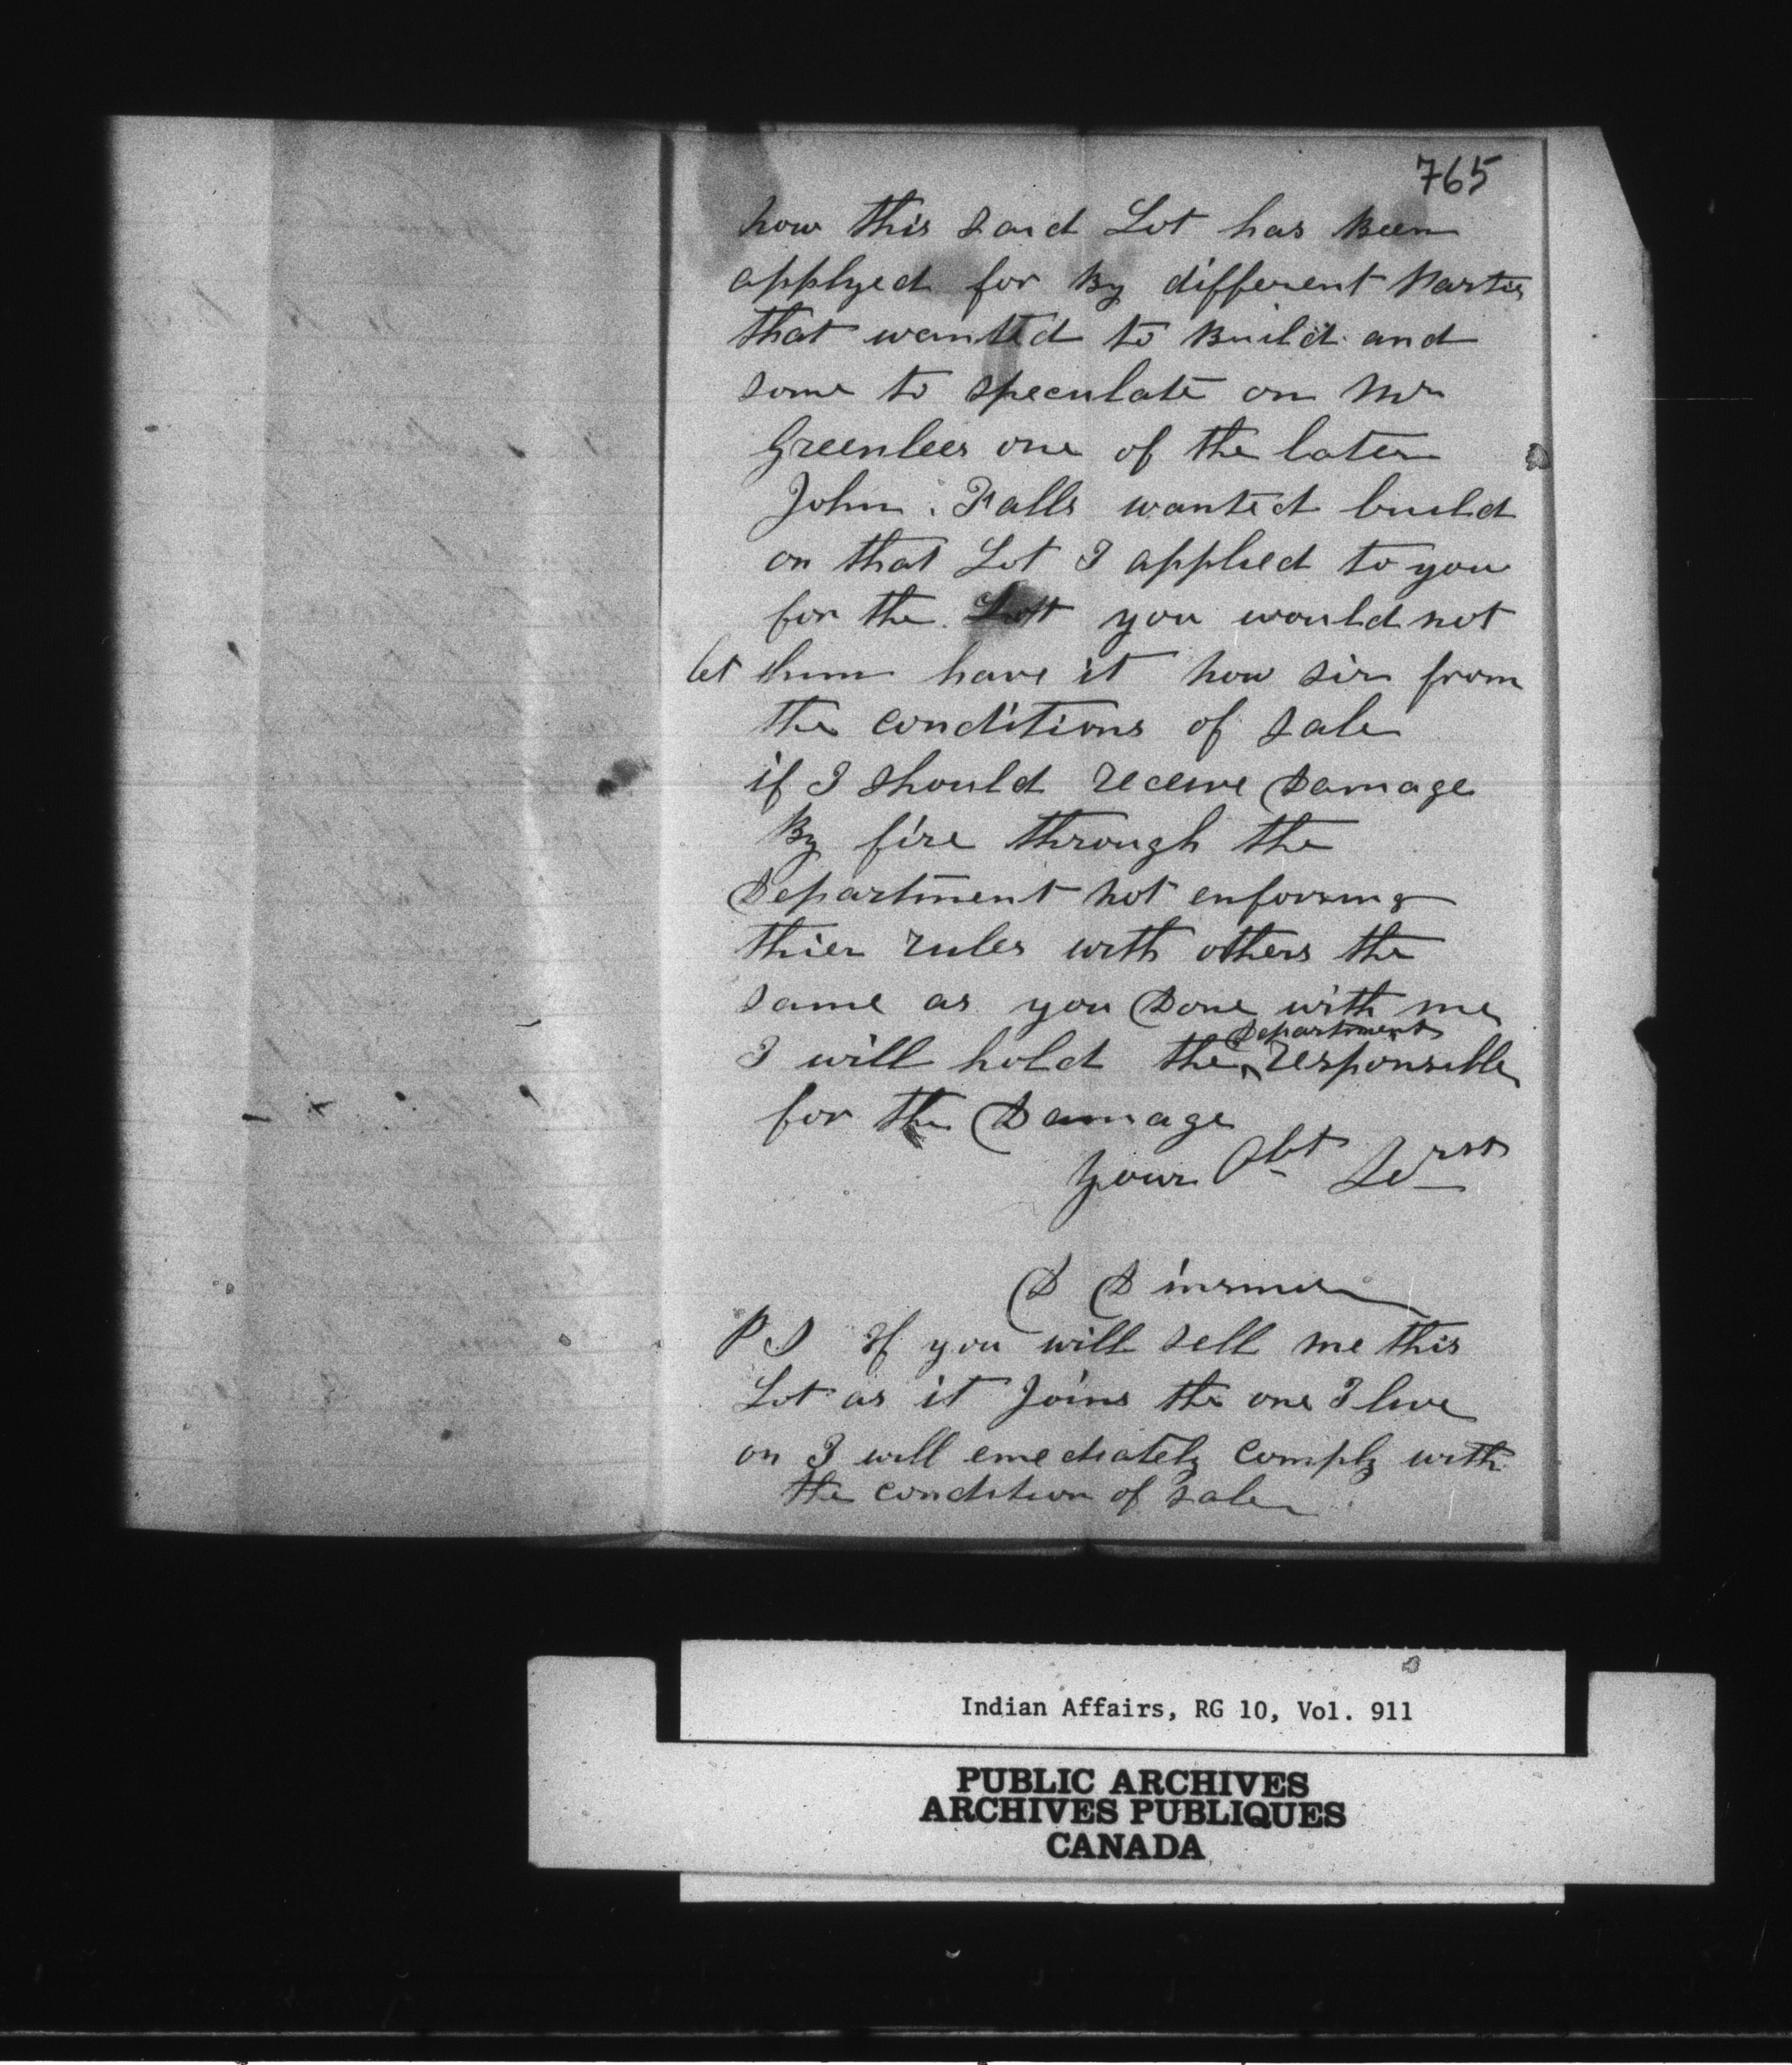 765
now this said Lot has Been
applyed for By different Parties
that wanted to Build and
some to speculate on Mr
Greenlees one of the later
John Falls wanted build
on that Lot I applied to you
for the Lott you would not
let him have it now sir from
the conditions of sale
if I should receive Damage
By fire through the
Department not enforsing
thier rules with others the
same as you Done with me
I will hold the Department responsible
for the Damage
your Obt Servt
D Dinsmore
P S If you will sell me this
Lot as it Joins the one I live
on I will emediately comply with
the condition of sale
Indian Affairs, RG 10, Vol. 911
PUBLIC ARCHIVES
ARCHIVES PUBLIQUES
CANADA